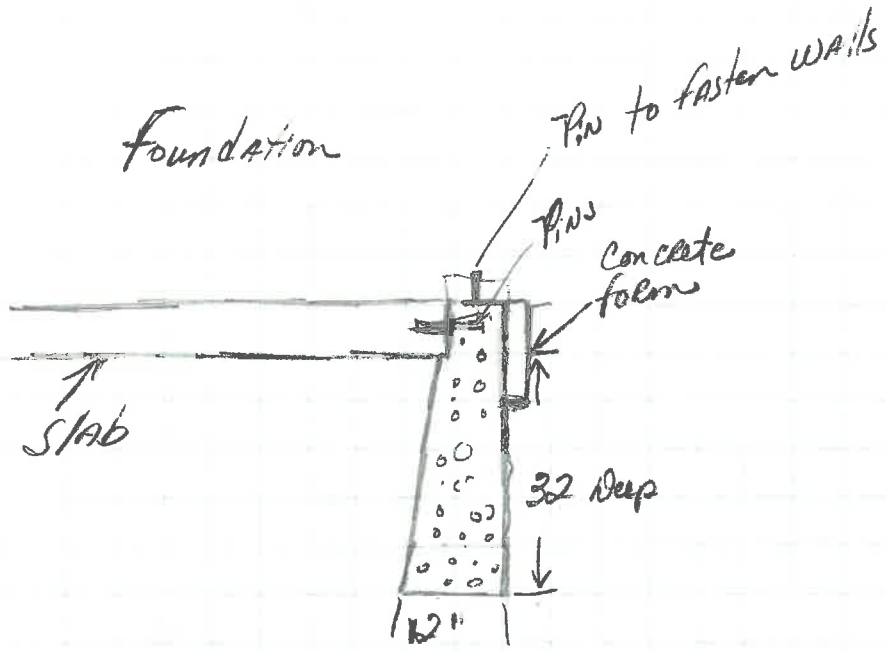 Foundation
Pin to fasten walls
Pins
Concrete
form
Slab
32 Deep
12"